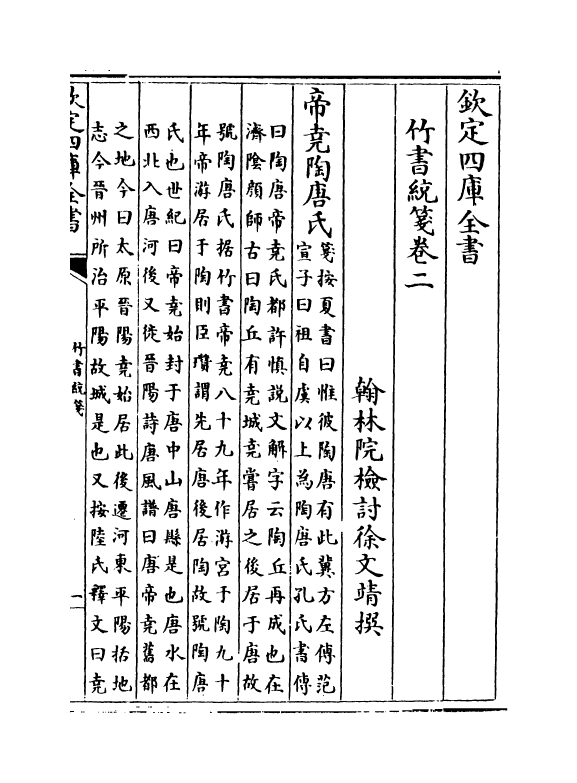 欽定四庫全書
竹書統箋卷二
翰林院檢討徐文靖撰
帝堯陶唐氏
箋按夏書曰惟彼陶唐有此冀方左傳范
宣子曰祖自虞以上為陶唐氏孔氏書傳
曰陶唐帝堯氏都許慎說文解字云陶丘再成也在
濟陰顏師古曰陶丘有堯城堯嘗居之後居于唐故
號陶唐氏据竹書帝堯八十九年作游宮于陶九十
年帝游居于陶則臣瓚謂先居唐後居陶故號陶唐
氏也世紀曰帝堯始封于唐中山唐縣是也唐水在
西北入唐河後又徙晉陽詩唐風譜曰唐帝堯舊都
之地今曰太原晉陽堯始居此後遷河東平陽括地
志今晉州所治平陽故城是也又按陸氏釋文曰堯
欽定四庫全書
竹書統箋
一